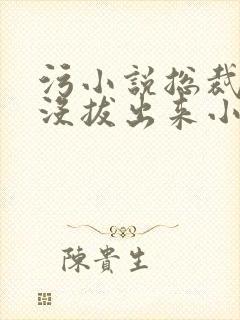 污小说总裁
没拔出来小
陳貴生